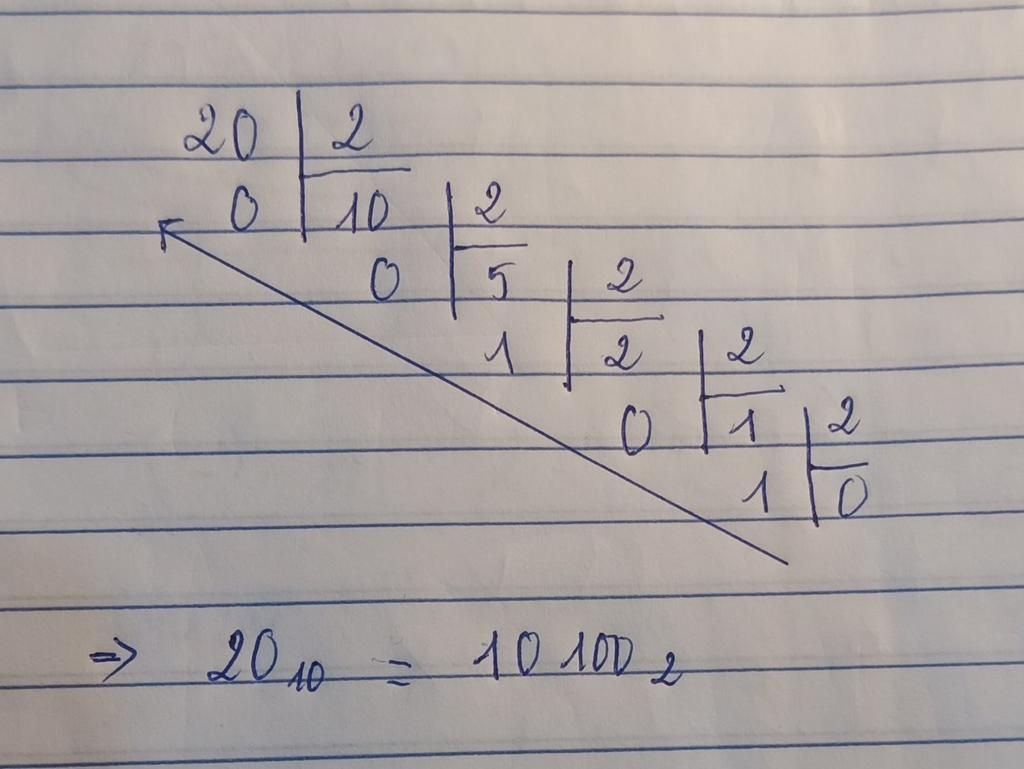 20 2
0 10 2
0 5 2
1 2 2
0 1 2
1 0
⇒ 20₁₀ = 10100₂